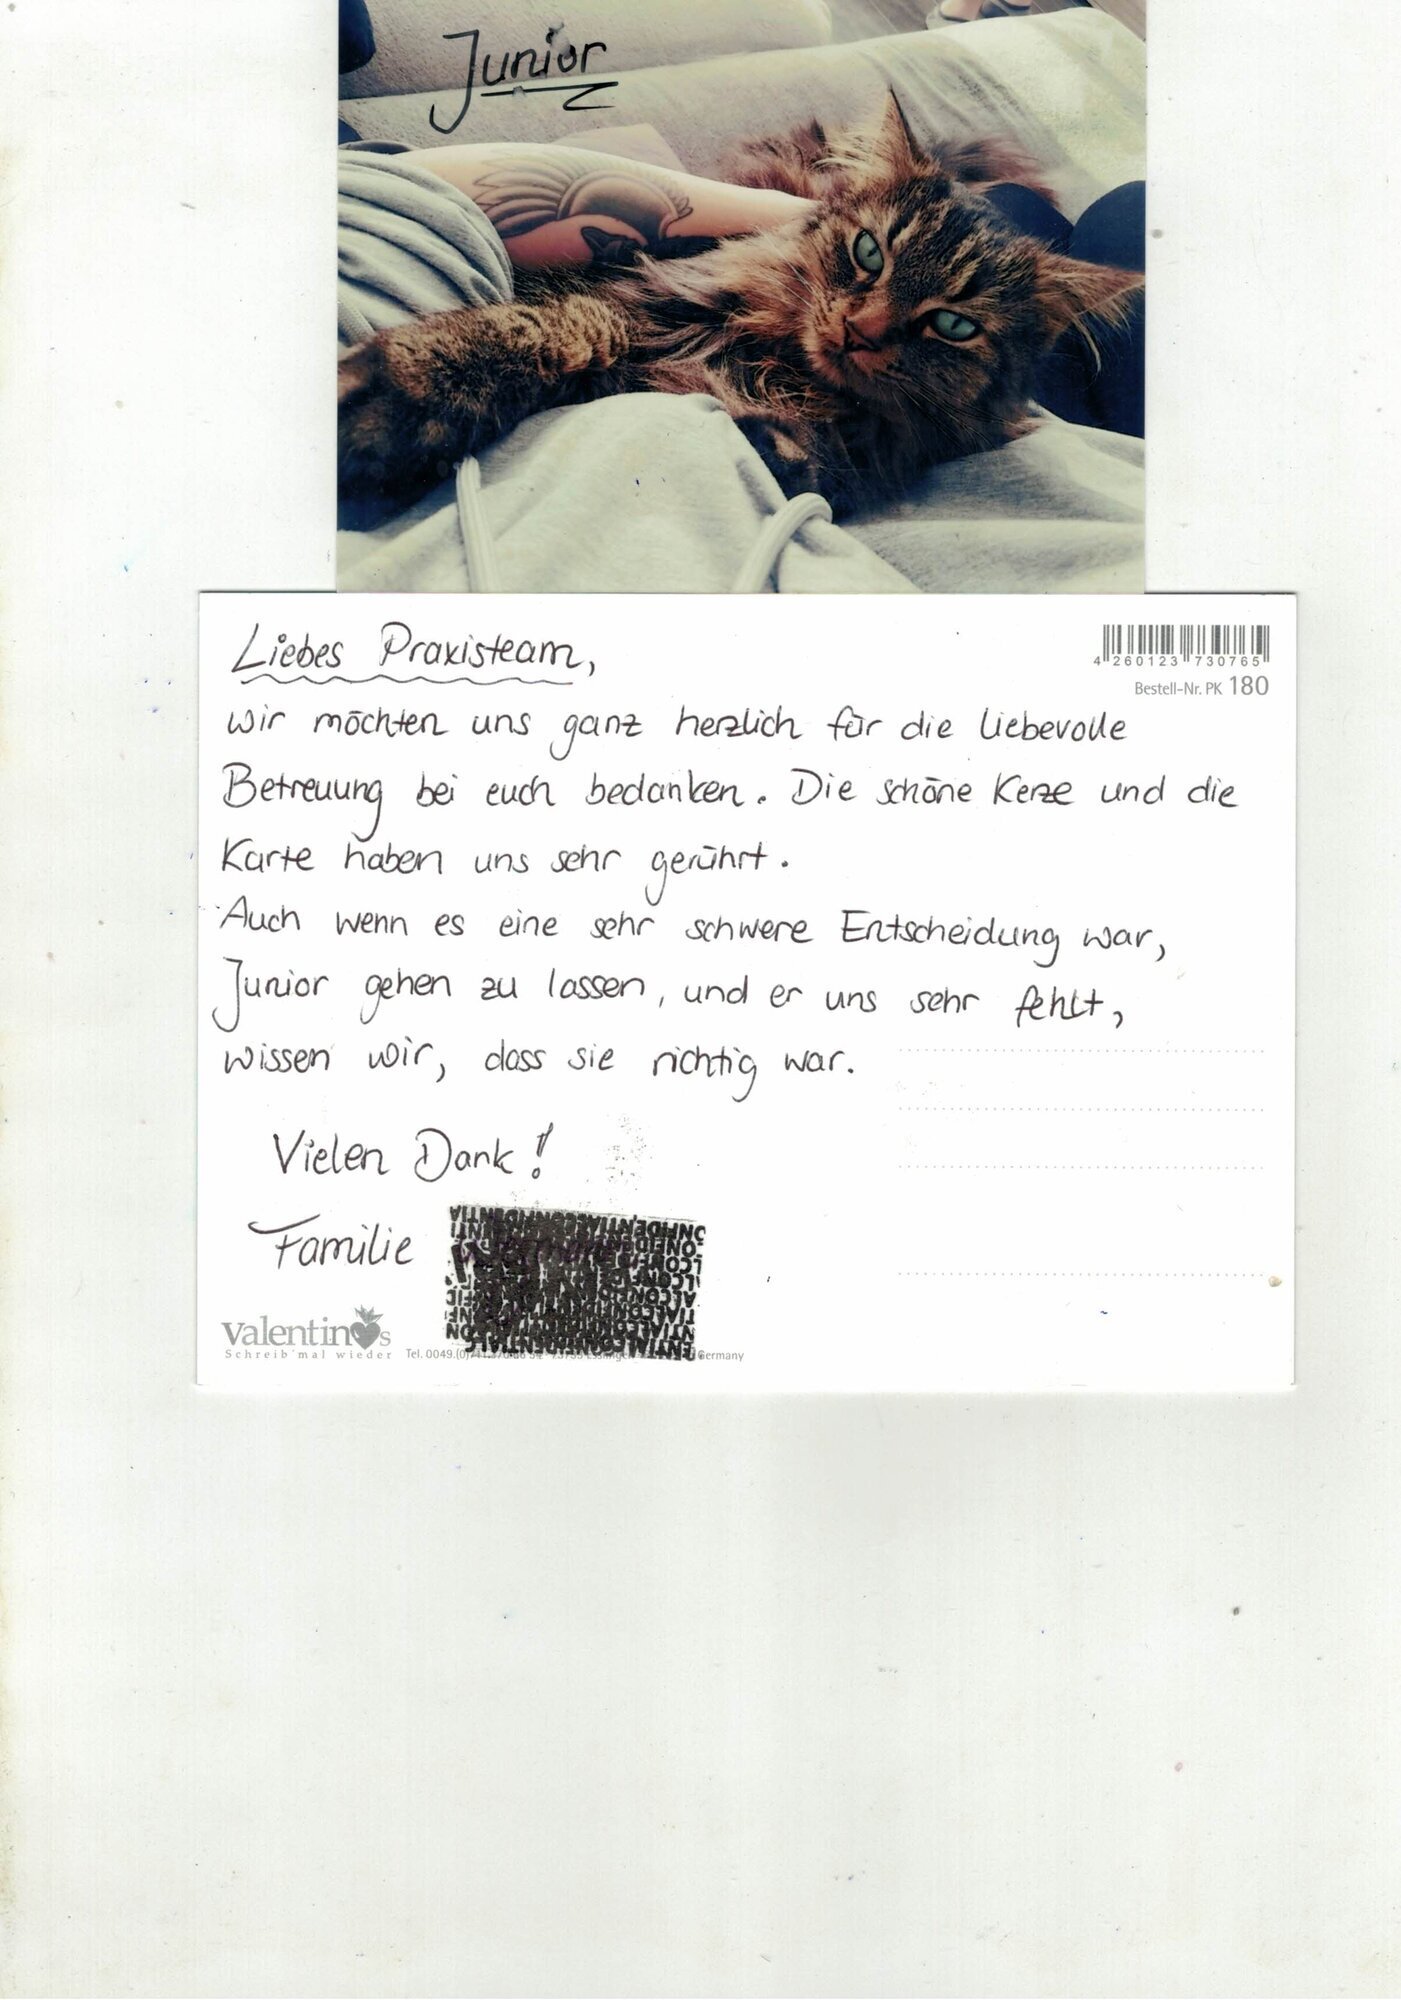 Junior
4 260123 730765
Bestell-Nr. PK 180
Liebes Praxisteam,
wir möchten uns ganz herzlich für die liebevolle
Betreuung bei euch bedanken. Die schöne Kerze und die
Karte haben uns sehr gerührt.
Auch wenn es eine sehr schwere Entscheidung war,
Junior gehen zu lassen, und er uns sehr fehlt,
wissen wir, dass sie richtig war.
Vielen Dank!
Familie
valentins
Schreib'mal wieder
Tel. 0049.(0) Germany